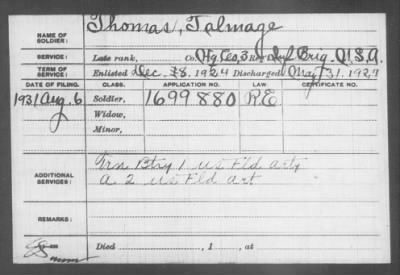 NAME OF SOLDIER: Thomas, Talmage
SERVICE: Late rank, Co. Hq. Co, 3 Inf Brig. U.S.A.
TERM OF SERVICE: Enlisted Dec. 28. 1924 Discharged May 31. 1927
DATE OF FILING. CLASS. APPLICATION NO. LAW. CERTIFICATE NO.
1931 Aug. 6 Soldier, 1699880 R.E
Widow,
Minor,
ADDITIONAL SERVICES: Btry 1 US Fld arty
A 2 US Fld art
REMARKS:
Died , 1 , at